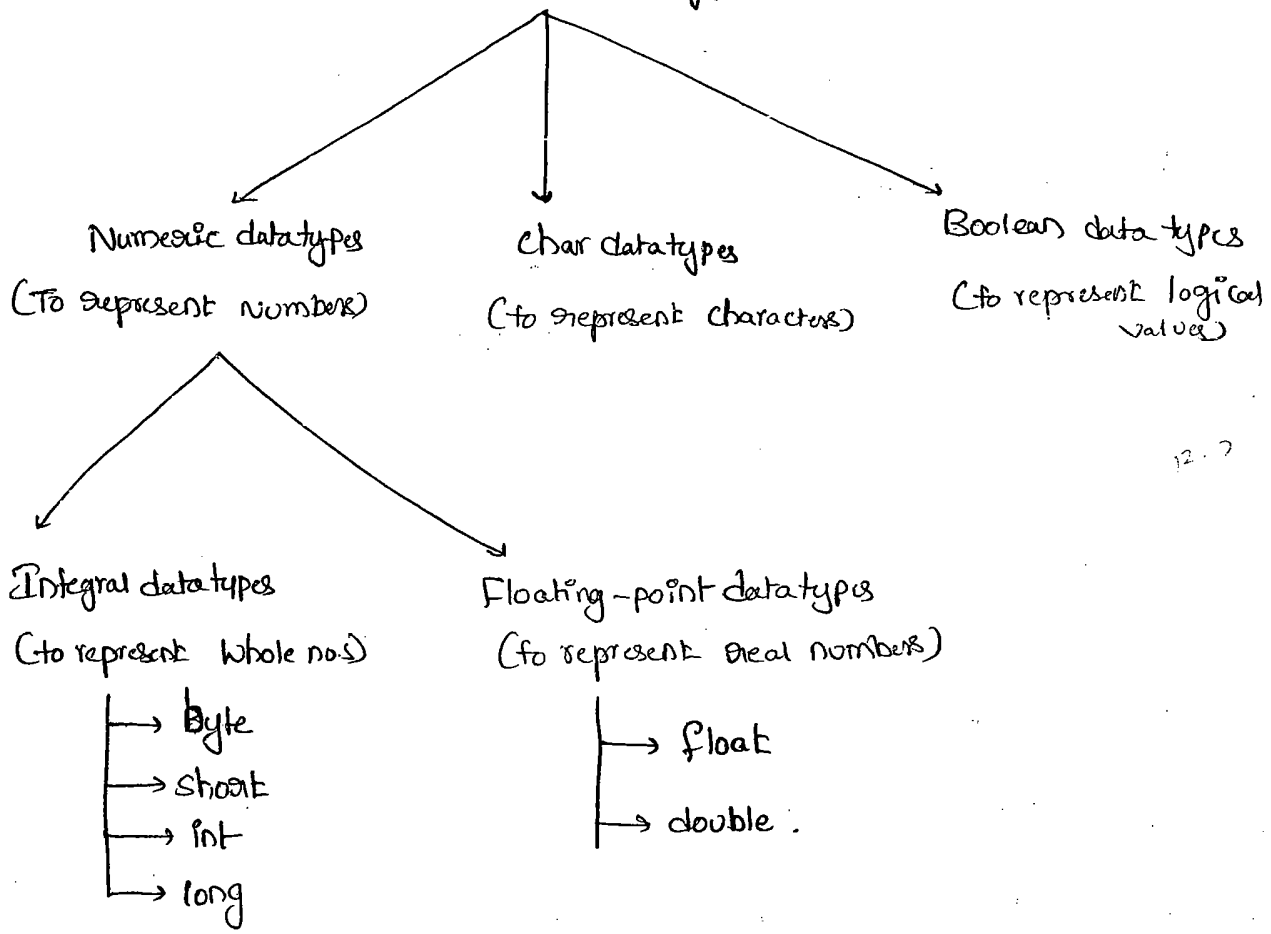 Numeric datatypes
(To represent Numbers)
Char datatypes
(to represent characters)
Boolean data types
(to represent logical
values)
Integral datatypes
(to represent Whole nos)
byte
short
int
long
Floating-point datatypes
(to represent real numbers)
float
double.